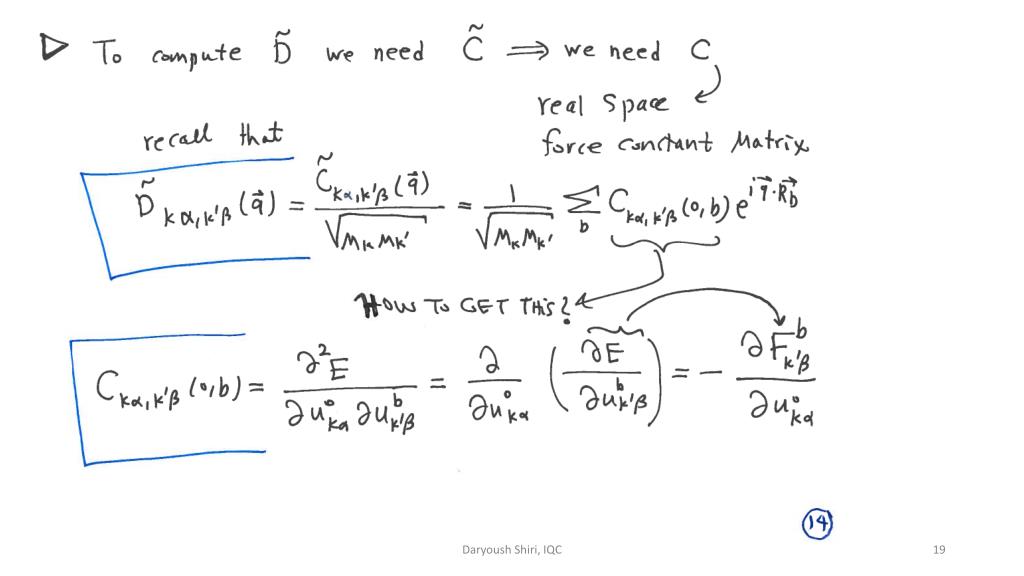 ▷ To compute D̃ we need C̃ ⟹ we need C
real space
force constant Matrix
recall that
D̃_{kα,k'β}(q⃗) = C̃_{kα,k'β}(q⃗) / √(M_k M_k') = 1/√(M_k M_k') Σ_b C_{kα,k'β}(0,b) e^{i q⃗·R⃗_b}
HOW TO GET THIS?
C_{kα,k'β}(0,b) = ∂²E / ∂u°_{kα} ∂u^b_{k'β} = ∂/∂u°_{kα} (∂E/∂u^b_{k'β}) = − ∂F^b_{k'β}/∂u°_{kα}
14
Daryoush Shiri, IQC 19